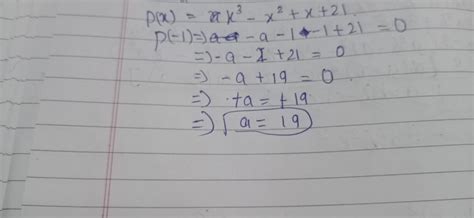 p(x) = ax³ - x² + x + 21
p(-1) => -a - 1 - 1 + 21 = 0
=> -a - 2 + 21 = 0
=> -a + 19 = 0
=> +a = +19
=> a = 19